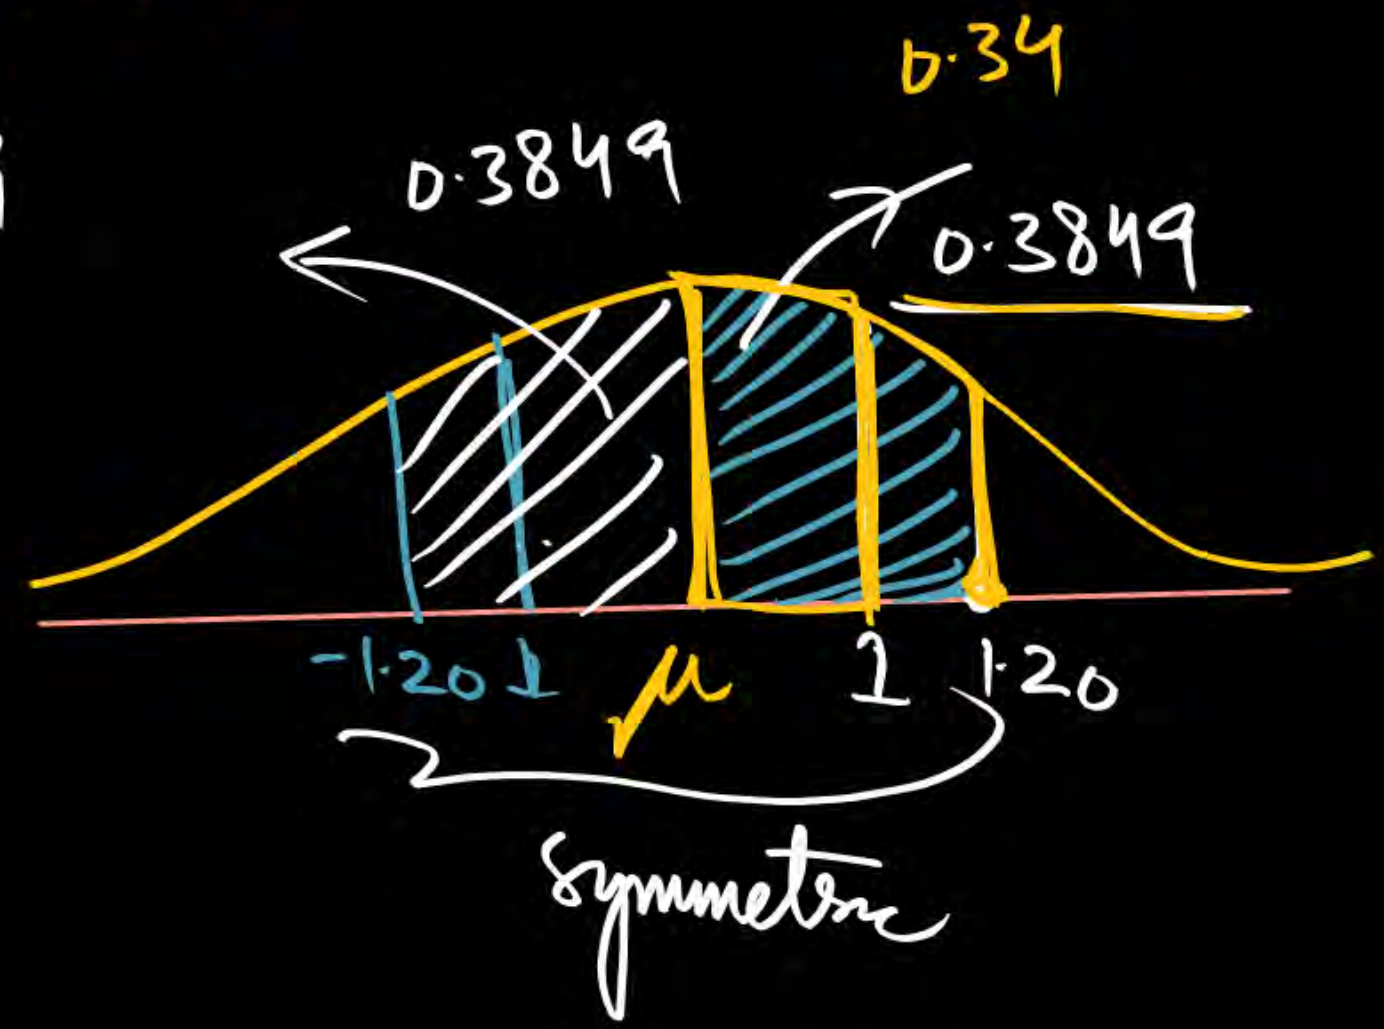 0.34
0.3849
0.3849
-1.20 1 μ 1 1.20
symmetric